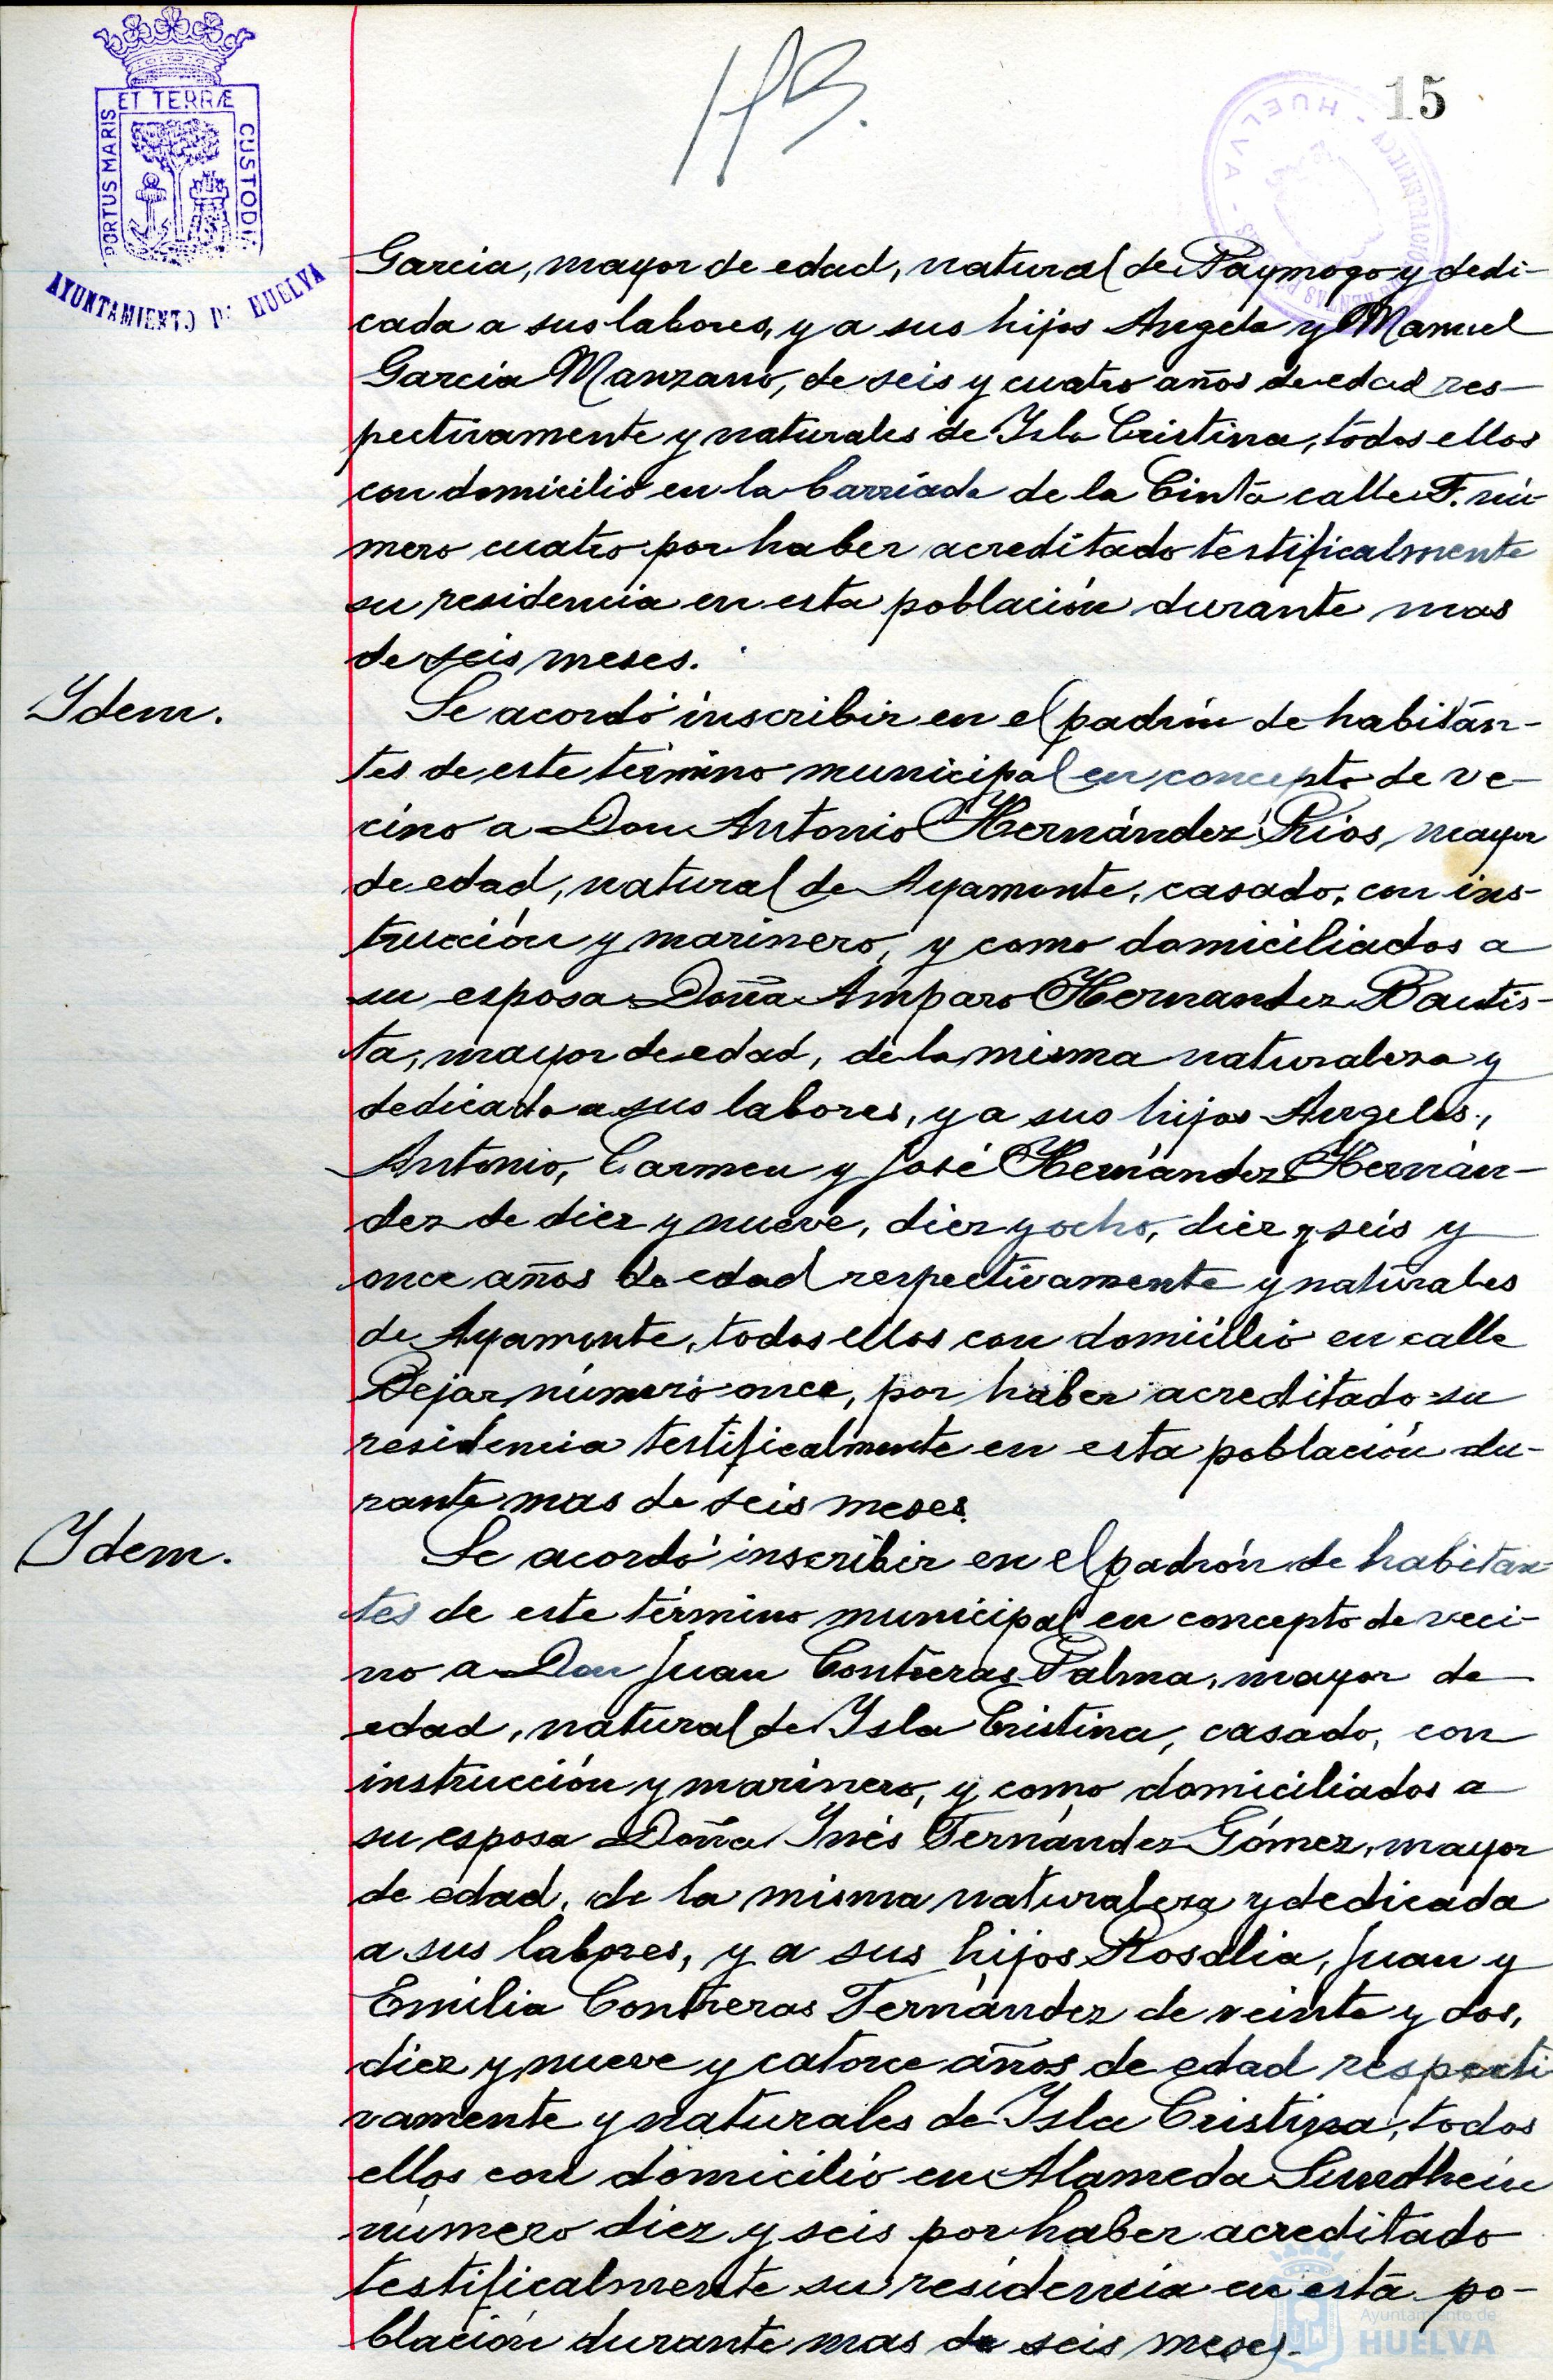 ET TERRÆ
PORTUS MARIS
CUSTODIA
AYUNTAMIENTO DE HUELVA
15
HUELVA
Garcia, mayor de edad, natural de Paymogo y dedi-
cada a sus labores, y a sus hijos Angela y Manuel
García Manzano, de seis y cuatro años de edad res-
pectivamente y naturales de Isla Cristina, todos ellos
con domicilio en la barriada de la Cinta calle F. nú-
mero cuatro por haber acreditado testificalmente
su residencia en esta población durante mas
de seis meses.
Ydem.
Se acordó inscribir en el padrón de habitan-
tes de este término municipal en concepto de ve-
cino a Don Antonio Hernández Ríos, mayor
de edad, natural de Ayamonte, casado, con ins-
trucción y marinero, y como domiciliados a
su esposa Doña Amparo Hernandez Bautis-
ta, mayor de edad, de la misma naturaleza y
dedicada a sus labores, y a sus hijos Angeles,
Antonio, Carmen y José Hernández Hernán-
dez de diez y nueve, diez y ocho, diez y seis y
once años de edad respectivamente y naturales
de Ayamonte, todos ellos con domicilio en calle
Bejar número once, por haber acreditado su
residencia testificalmente en esta población du-
rante mas de seis meses.
Ydem.
Se acordó inscribir en el padrón de habitan-
tes de este término municipal en concepto de veci-
no a Don Juan Contreras Palma, mayor de
edad, natural de Isla Cristina, casado, con
instrucción y marinero, y como domiciliados a
su esposa Doña Inés Fernández Gómez, mayor
de edad, de la misma naturaleza y dedicada
a sus labores, y a sus hijos Rosalia, Juan y
Emilia Contreras Fernández de veinte y dos,
diez y nueve y catorce años de edad respecti-
vamente y naturales de Isla Cristina, todos
ellos con domicilio en Alameda Sundhein
número diez y seis por haber acreditado
testificalmente su residencia en esta po-
blación durante mas de seis meses.
Ayuntamiento de
HUELVA